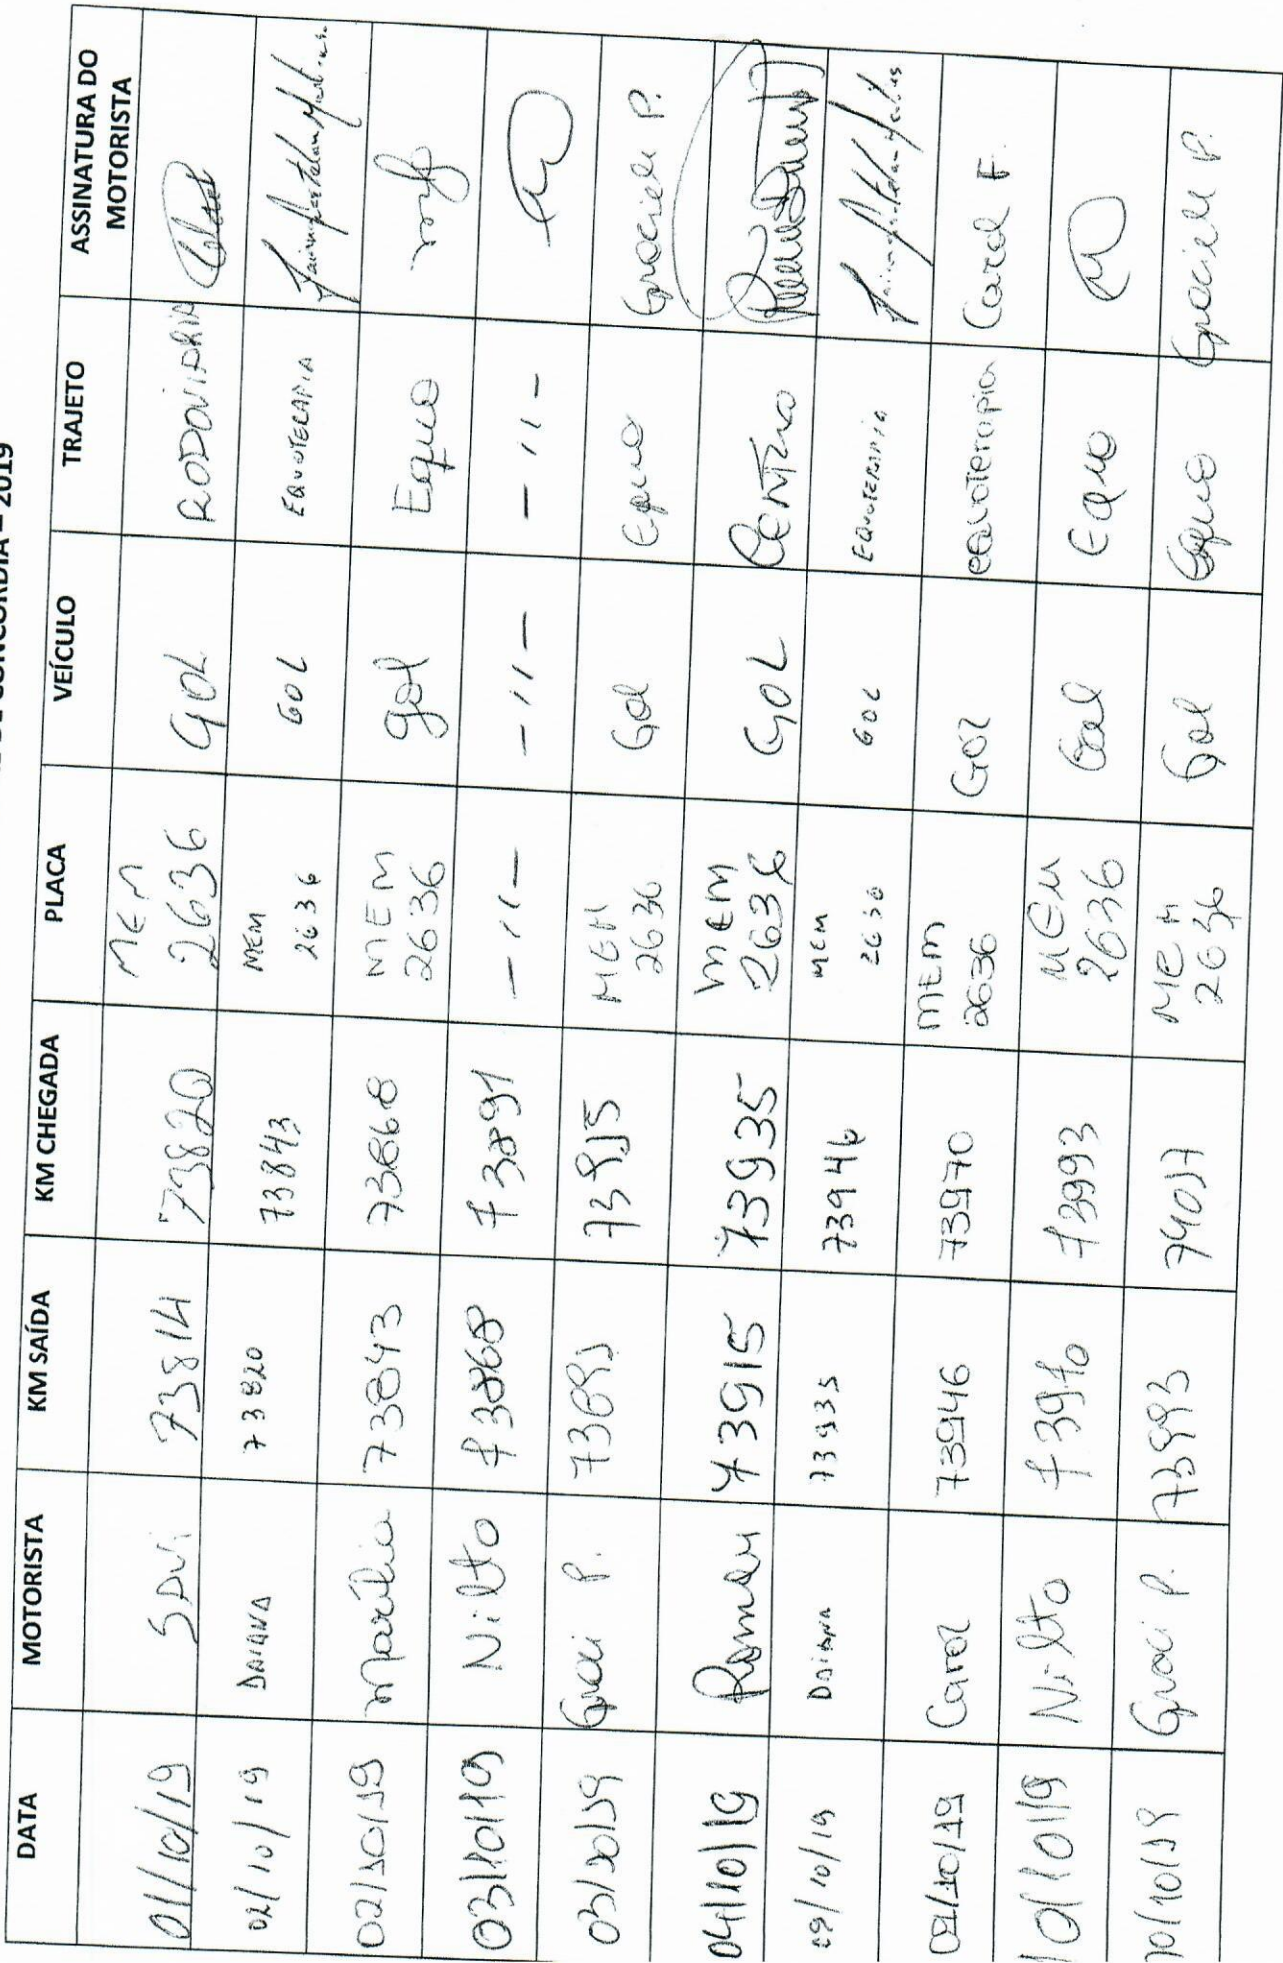 CONCÓRDIA – 2019
DATA MOTORISTA KM SAÍDA KM CHEGADA PLACA VEÍCULO TRAJETO ASSINATURA DO MOTORISTA
01/10/19 SAVI 73814 73820 MEM 2636 GOL RODOVIARIA
02/10/19 DAIANA 73820 73843 MEM 2636 GOL EQUOTERAPIA
02/10/19 Marília 73843 73868 MEM 2636 gol Equo
03/10/19 Nilto 73868 73891 - 11 - - 11 - - 11 -
03/10/19 Graci P. 73891 73915 MEM 2636 Gol Equo Gracieli P.
04/10/19 Romeu 73915 73935 MEM 2636 GOL Centro
09/10/19 DAIANA 73935 73946 MEM 2636 GOL EQUOTERAPIA
09/10/19 Carol 73946 73970 MEM 2636 GOL equoterapia Carol F.
10/10/19 Nilto 73970 73993 MEM 2636 Gol Equo
10/10/19 Graci P. 73993 74017 MEM 2636 Gol Equo Gracieli P.